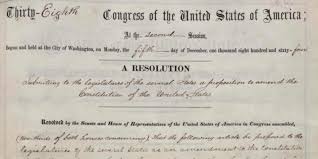 Thirty-Eighth Congress of the United States of America;
At the second Session,
Begun and held at the City of Washington, on Monday, the fifth day of December, one thousand eight hundred and sixty-four
A RESOLUTION
Submitting to the legislatures of the several States a proposition to amend the
Constitution of the United States.
Resolved by the Senate and House of Representatives of the United States of America in Congress assembled,
(two-thirds of both houses concurring), that the following article be proposed to the
legislatures of the several states as an amendment to the constitution